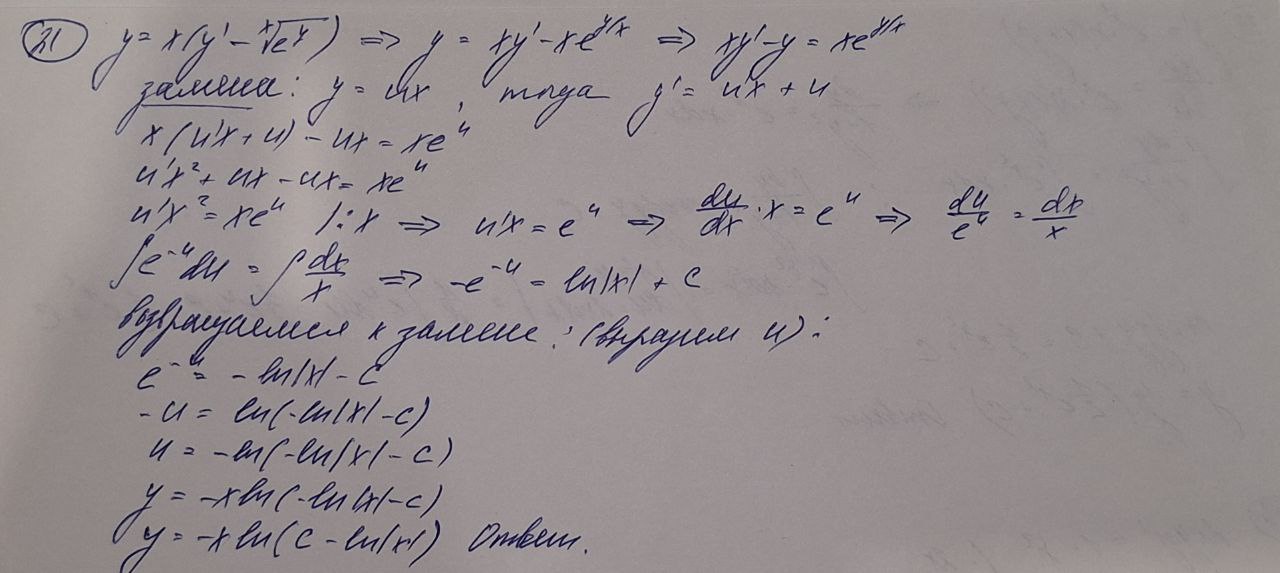 21 y = x(y' - ˣ√(eʸ)) => y = xy' - xe^(y/x) => xy' - y = xe^(y/x)
замена: y = ux, тогда y' = u'x + u
x(u'x + u) - ux = xe^u
u'x² + ux - ux = xe^u
u'x² = xe^u /:x => u'x = e^u => du/dx · x = e^u => du/e^u = dx/x
∫e^(-u)du = ∫dx/x => -e^(-u) = ln|x| + c
возвращаемся к замене: (выразим u):
e^(-u) = -ln|x| - c
-u = ln(-ln|x| - c)
u = -ln(-ln|x| - c)
y = -x ln(-ln|x| - c)
y = -x ln(c - ln|x|) Ответ.